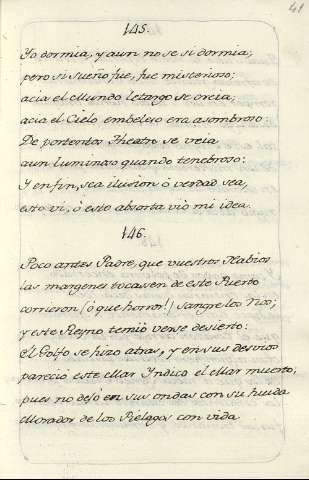 41
145.
Yo dormia, y aun no se si dormia;
pero si sueño fue, fue misterioso;
acia el Mundo letargo se creia;
acia el Cielo embeleso era asombroso:
De portentos Theatro se veia
aun luminoso quando tenebroso:
Y en fin, sea ilusion ó verdad sea,
esto vi, ó esto absorta vio mi idea.
146.
Poco antes Padre, que vuestros Navios
las margenes tocasen de este Puerto
corrieron (ó que horror!) sangre los Rios;
y este Reyno temió verse desierto:
el Golfo se hizo atras, y en sus desvios
pareció este Mar Yndico el Mar muerto;
pues no dejó en sus ondas con su huida
Morador de los Pielagos con vida